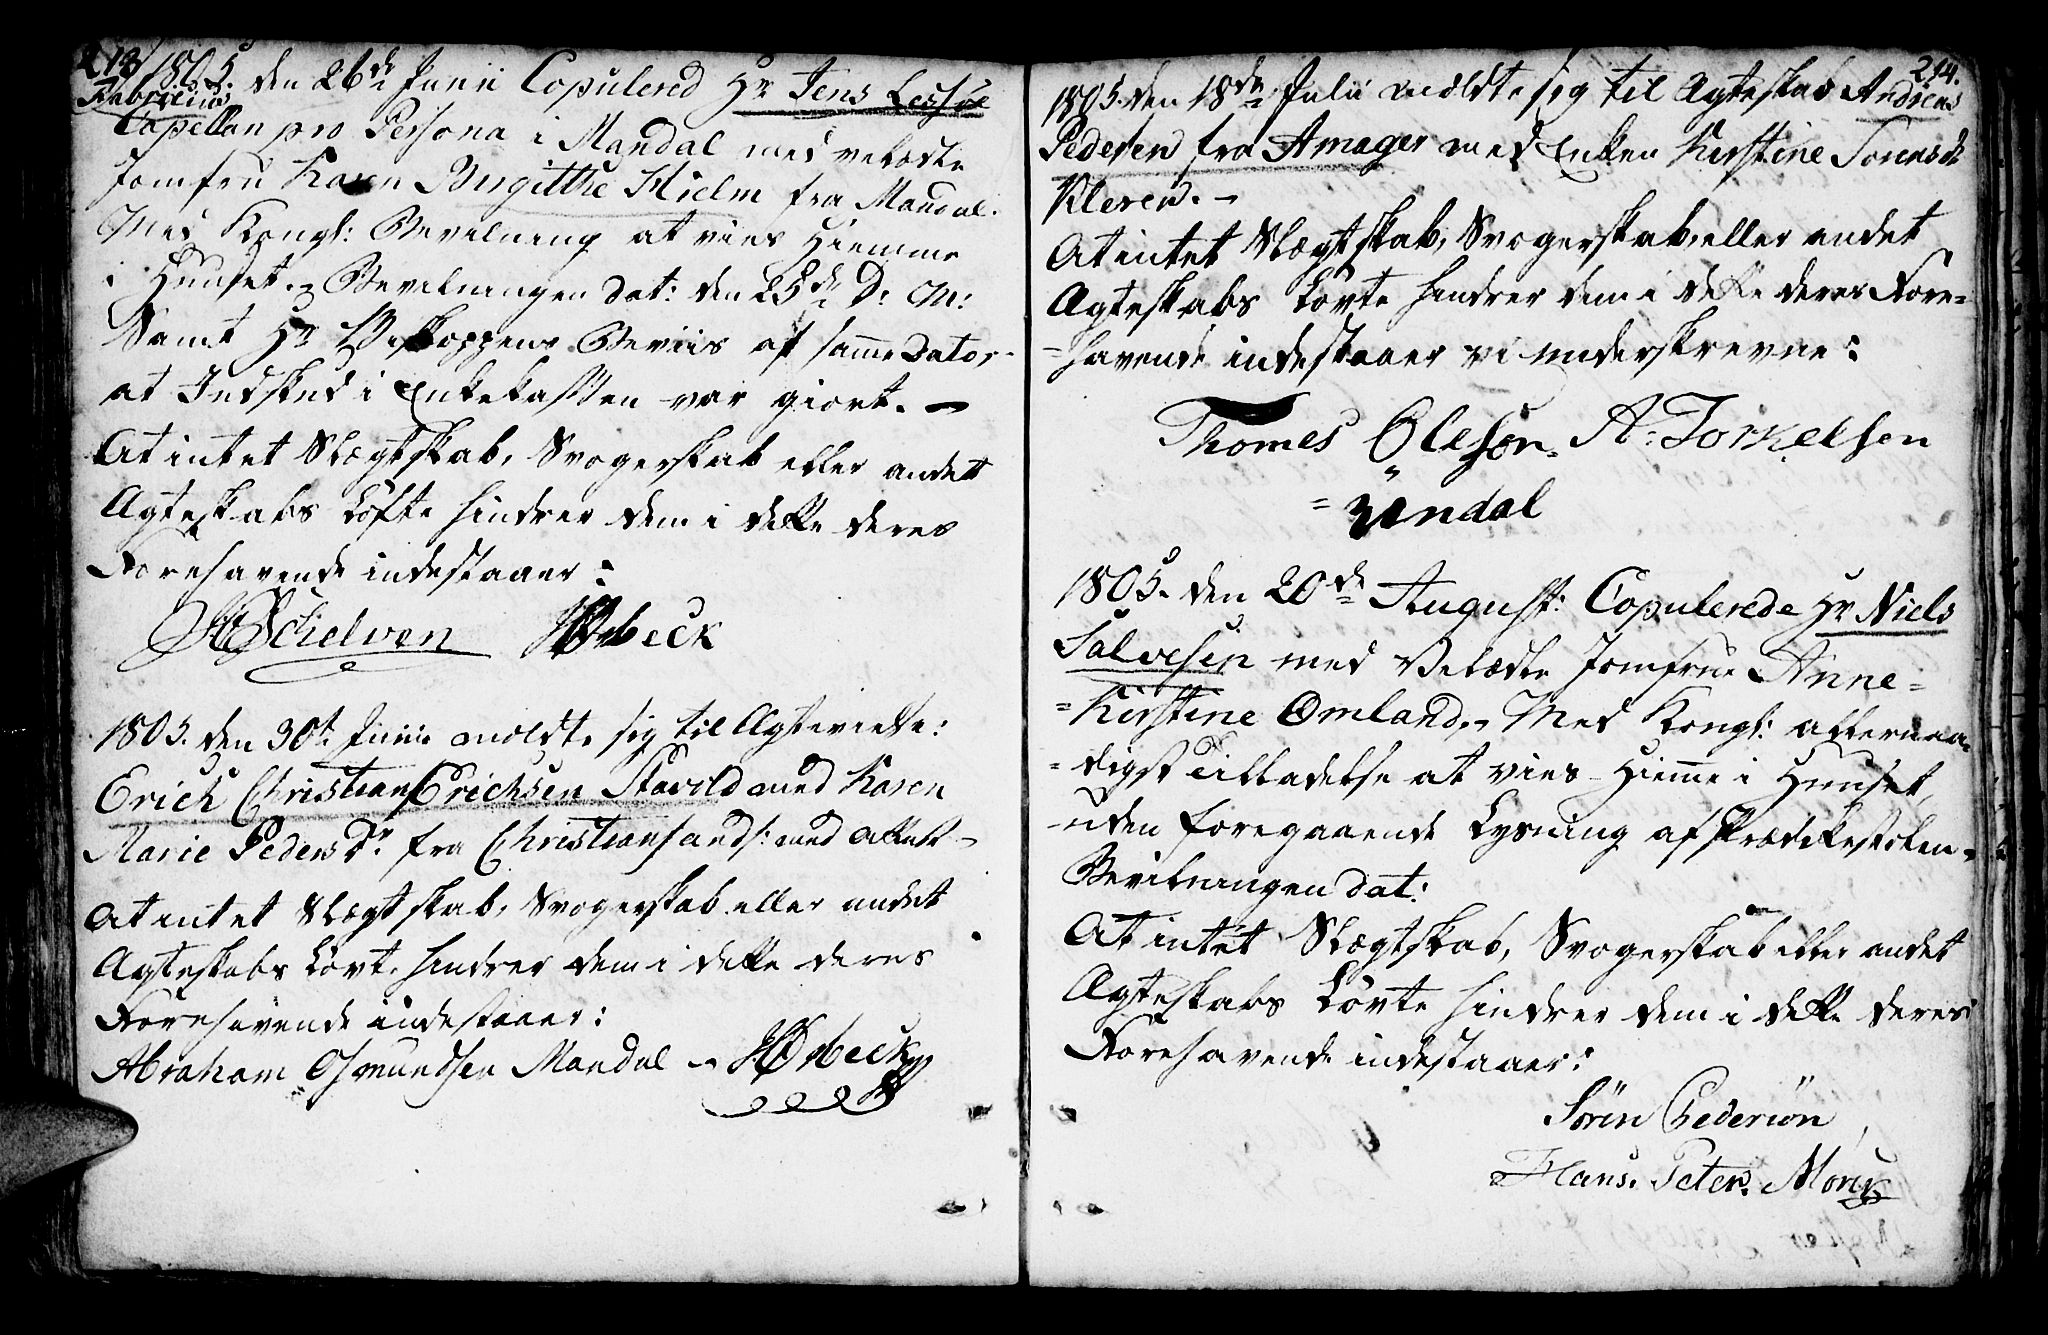 213
1805. den 26de Junii Copulered Hr Jens Lessøe
Fabricius
Capellan pro Persona i Mandal med velædle
Jomfru Karen Birgithe Hielm fra Mandal.
Med Kongl: Bevilning at vies Hiemme
i Huuset. Bevilningen dat: den 25de D: M:
Samt Hr Biskoppens Beviis af samme Dato,
at Indskud i Enkekassen var giort. —
At intet Slægtskab, Svogerskab eller andet
Ægteskabs Løfte hindrer dem i dette deres
Forehavende indestaaer:
Schelven Ørbeck
1805. den 30te Junii meldte sig til Ægtevielse:
Erich Christian Erichsen Stavild med Karen
Marie Peders Dr fra Christiansand: med attest —
At intet Slægtskab, Svogerskab eller andet
Ægteskabs Løvte hindrer dem i dette deres
Forehavende indestaaer:
Abraham Osmundsen Mandal — Ørbeck
214.
1805. den 18de Julii meldte sig til Ægteskab Andreas
Pedersen fra Amager med Enken Kirstine Sørensdr
Kleven. —
At intet Slægtskab, Svogerskab, eller andet
Ægteskabs Løvte hindrer dem i dette deres Fore=
=havende indestaaer vi underskrevne:
Thomes Olesøn A: Torkelsen
=Undal
1805. den 20de August: Copulerede Hr Niels
Salvesen med Velædle Jomfrue Anne=
=Kirstine Omland. Med Kongl: allernaa=
=digst Tilladelse at vies Hiemme i Huuset,
uden foregaaende Lysning af Prædikestolen
Bevilningen dat:
At intet Slægtskab, Svogerskab eller andet
Ægteskabs Løvte hindrer dem i dette deres
Forehavende indestaaer:
Sörin Pedersön
Hans. Peter. Mörch